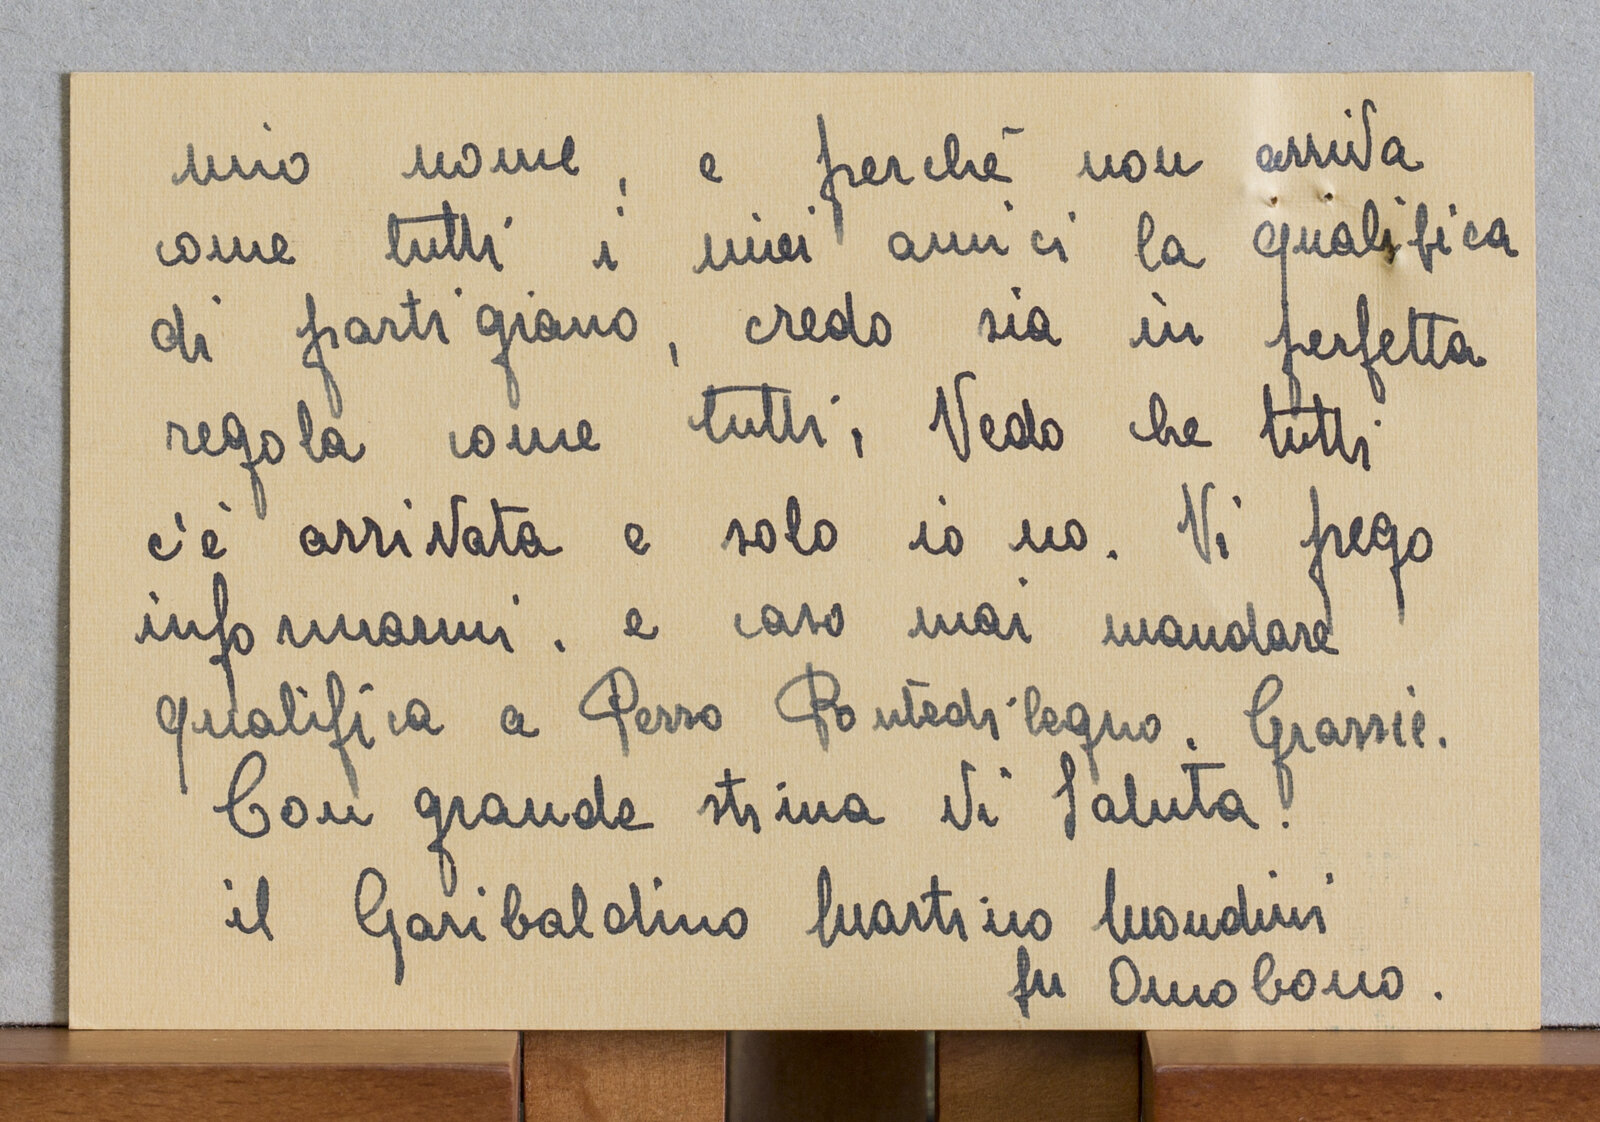 mio nome, e perchè non arriva
come tutti i miei amici la qualifica
di partigiano, credo sia in perfetta
regola come tutti, Vedo che tutti
c'è arrivata e solo io no. Vi prego
informarmi. e caso mai mandare
qualifica a Pezzo Pontedilegno. Grassie.
Con grande stima Vi Saluta.
il Garibaldino Martino Mondini
fu Omobono.